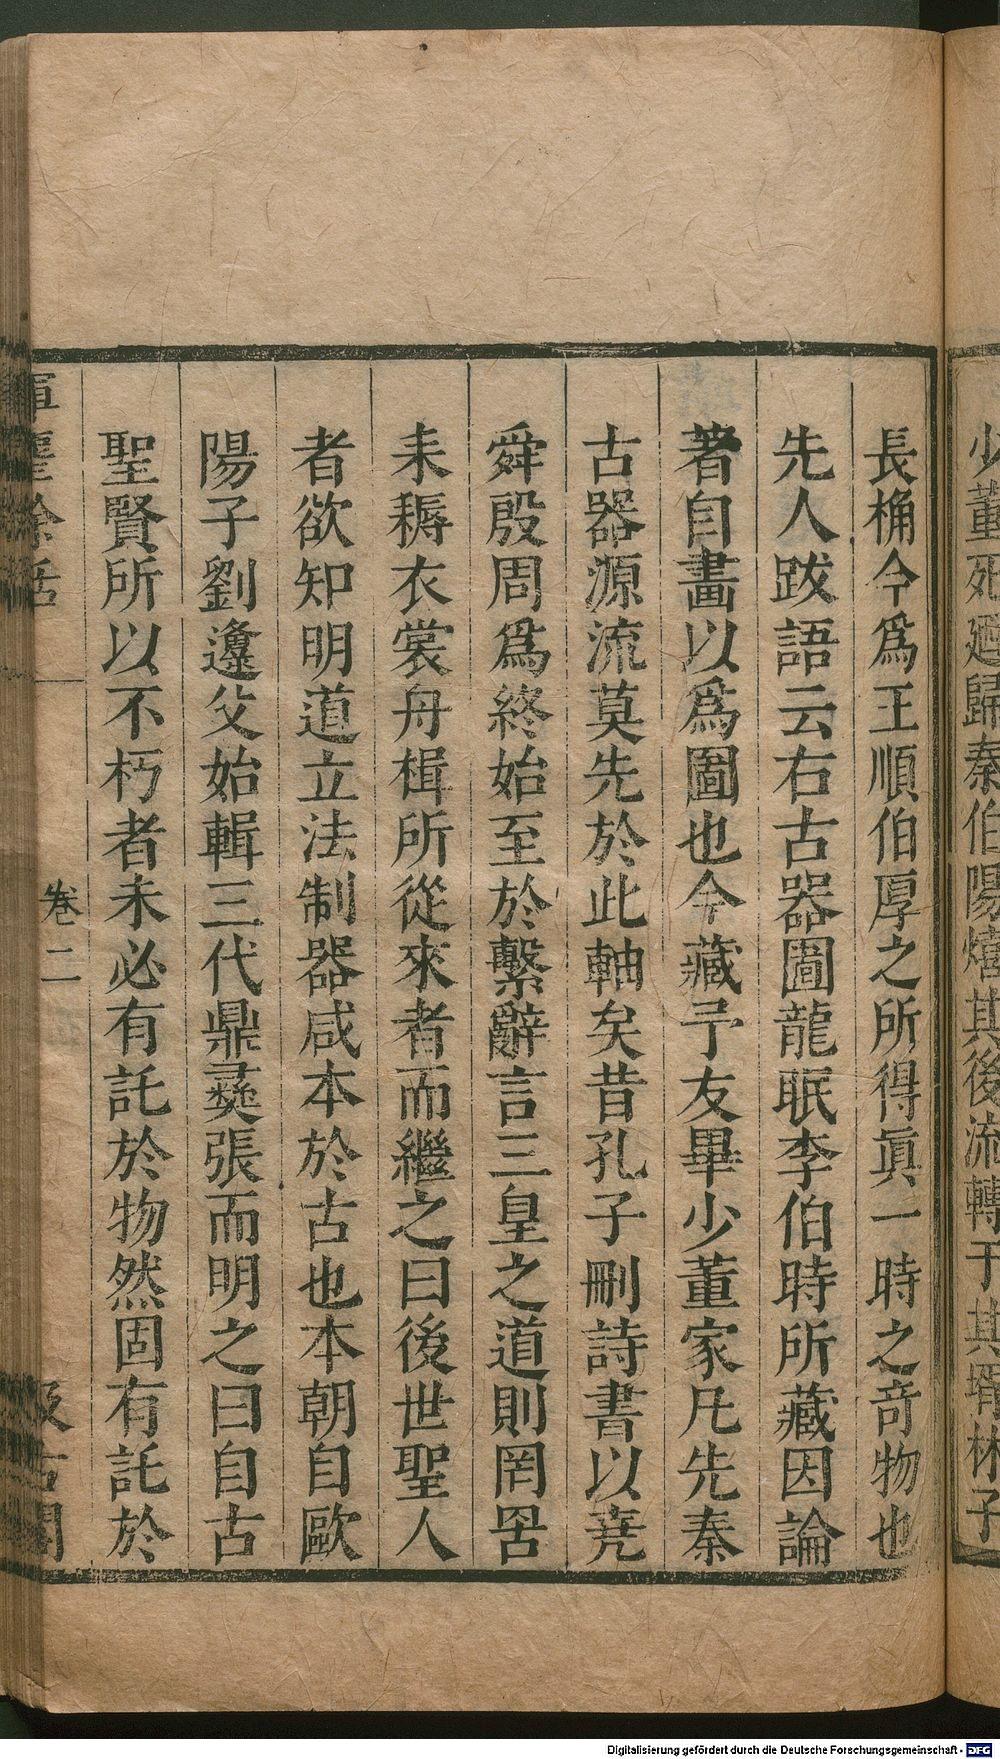 少董死廼歸秦伯陽熺其後流轉于其壻林子
長桷今爲王順伯厚之所得眞一時之竒物也
先人跋語云右古器圖龍眠李伯時所藏因論
著自畫以爲圖也今藏予友畢少董家凡先秦
古器源流莫先於此軸矣昔孔子刪詩書以尭
舜殷周爲終始至於繫辭言三皇之道則罔罟
耒耨衣裳舟楫所從來者而繼之曰後世聖人
者欲知明道立法制器咸本於古也本朝自歐
陽子劉邍父始輯三代鼎彝張而明之曰自古
聖賢所以不朽者未必有託於物然固有託於
餘話
卷二
汲古閣
Digitalisierung gefördert durch die Deutsche Forschungsgemeinschaft - DFG